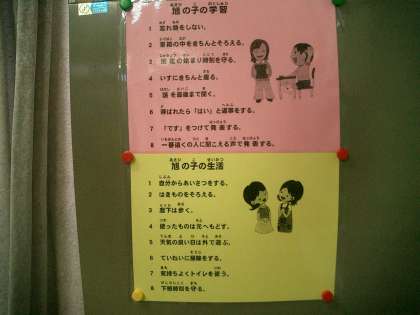 旭の子の学習
1 忘れ物をしない。
2 筆箱の中をきちんとそろえる。
3 授業の始まり時刻を守る。
4 いすにきちんと座る。
5 話を最後まで聞く。
6 呼ばれたら「はい」と返事をする。
7 「です」をつけて発表する。
8 一番遠くの人に聞こえる声で発表する。
旭の子の生活
1 自分からあいさつをする。
2 はきものをそろえる。
3 廊下は歩く。
4 使ったものは元へもどす。
5 天気の良い日は外で遊ぶ。
6 ていねいに掃除をする。
7 気持ちよくトイレを使う。
8 下校時刻を守る。